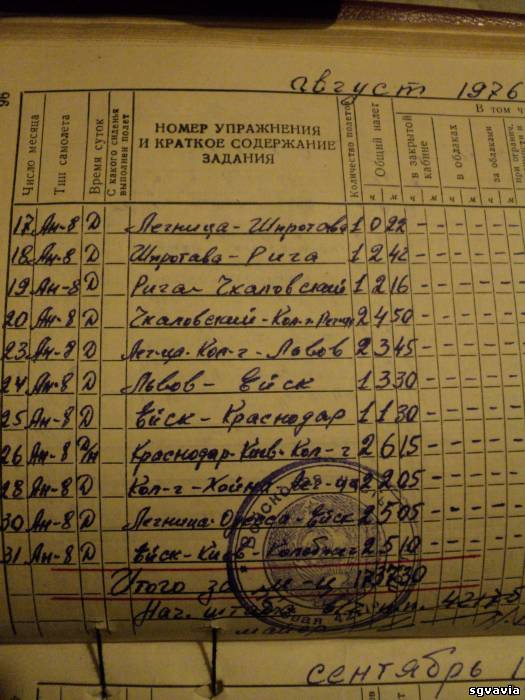 96
август 1976
Число месяца
Тип самолета
Время суток
С какого сиденья выполнен полет
НОМЕР УПРАЖНЕНИЯ
И КРАТКОЕ СОДЕРЖАНИЕ
ЗАДАНИЯ
Количество полетов
Общий налет
В том ч
в закрытой кабине
в облаках
за облаками
при огранич.
ч м ч м ч м ч м
17 Ан-8 Д Легница-Шпротава 1 0 22 - - - - - -
18 Ан-8 Д Шпротава-Рига 1 2 42 - - - - - -
19 Ан-8 Д Рига-Чкаловский 1 2 16 - - - - - -
20 Ан-8 Д Чкаловский-Кол-г 2 4 50 - - - - - -
23 Ан-8 Д Лег-ца-Кол-г-Львов 2 3 45 - - - - - -
24 Ан-8 Д Львов-Ейск 1 3 30 - - - - - -
25 Ан-8 Д Ейск-Краснодар 1 1 30 - - - - - -
26 Ан-8 Д/Н Краснодар-Киев-Кол-г 2 6 15 - - - - - -
28 Ан-8 Д Кол-г-Хойна Лег-ца 2 2 05 - - - - - -
30 Ан-8 Д Легница-Одесса-Ейск 2 5 05 - - - - - -
31 Ан-8 Д Ейск-Киев-Колобжег 2 5 10 - - - - - -
Итого за м-ц 17 37 30
Нач. штаба
майор
сентябрь 1
sgvavia